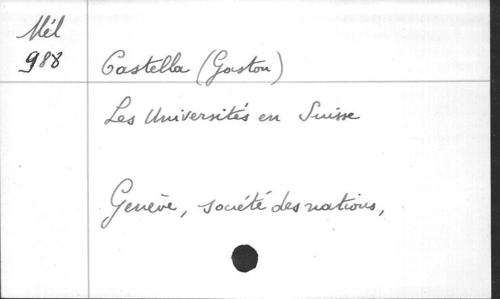 Mél
988
Castella (Gaston)
Les Universités en Suisse
Genève, société des nations,